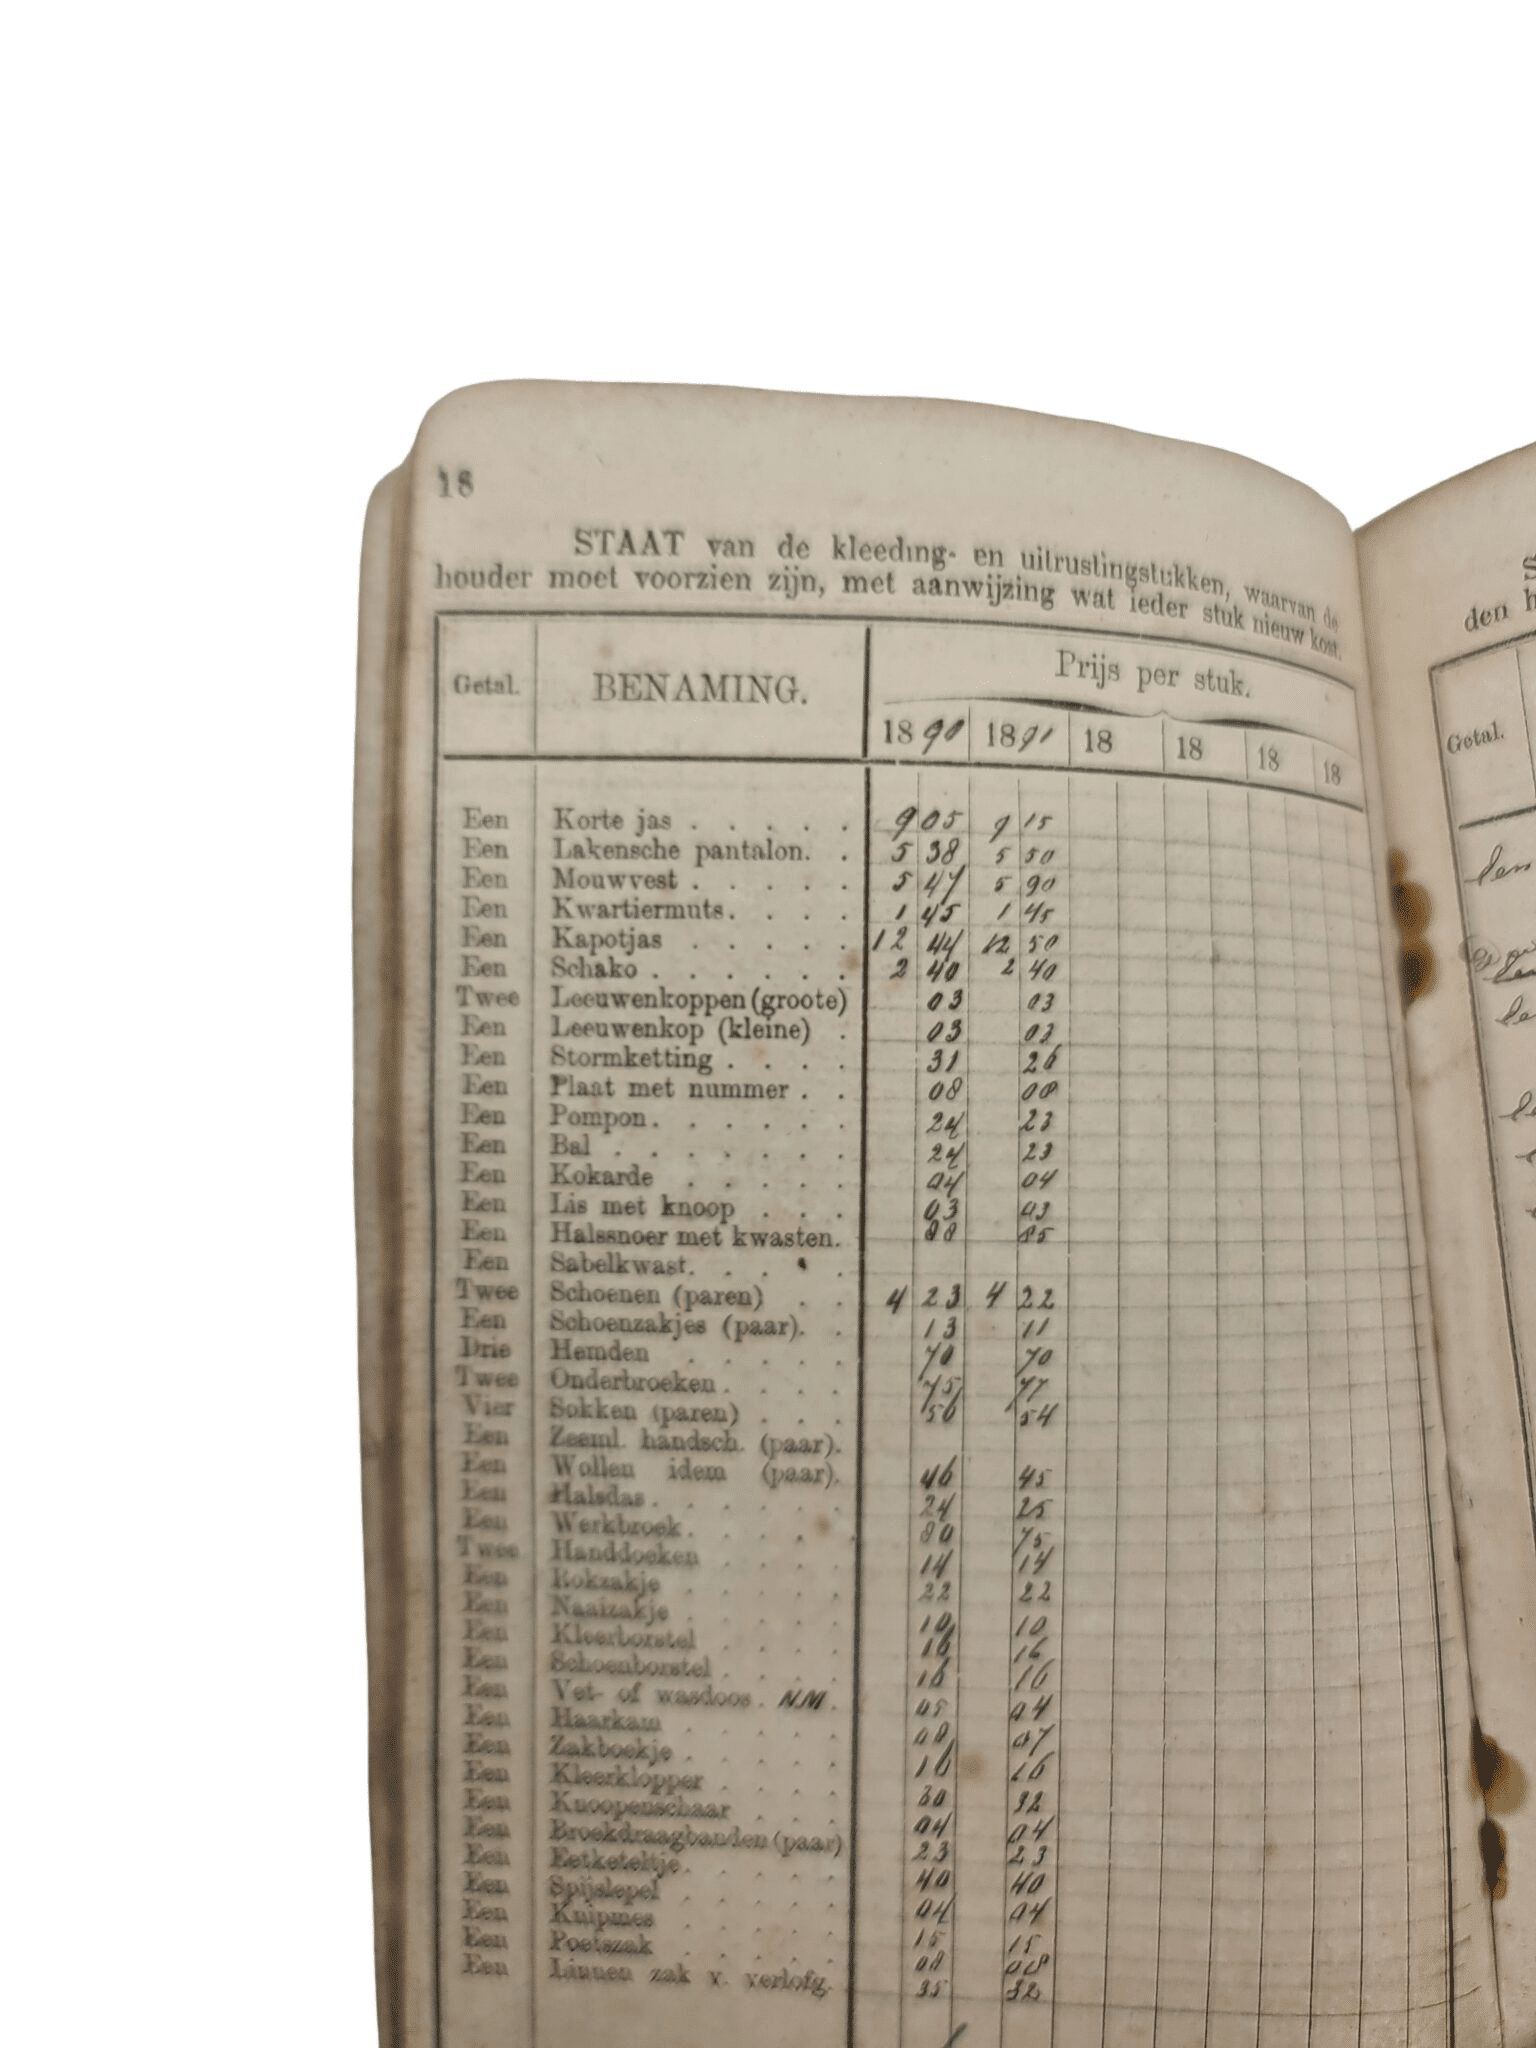 18
STAAT van de kleeding- en uitrustingstukken, waarvan de
houder moet voorzien zijn, met aanwijzing wat ieder stuk nieuw kost.
Getal. BENAMING. Prijs per stuk.
1890 1891 18 18 18 18
Een Korte jas . . . . . 9 05 9 15
Een Lakensche pantalon. . 5 38 5 50
Een Mouwvest . . . . . 5 47 5 90
Een Kwartiermuts. . . . 1 45 1 45
Een Kapotjas . . . . . 12 44 12 50
Een Schako . . . . . . 2 40 2 40
Twee Leeuwenkoppen (groote) 03 03
Een Leeuwenkop (kleine) . 03 03
Een Stormketting . . . . 31 26
Een Plaat met nummer . . 08 08
Een Pompon. . . . . . 24 23
Een Bal . . . . . . . 24 23
Een Kokarde . . . . . 04 04
Een Lis met knoop . . . 03 03
Een Halssnoer met kwasten. 88 85
Een Sabelkwast. . . . .
Twee Schoenen (paren) . . 4 23 4 22
Een Schoenzakjes (paar). . 13 11
Drie Hemden . . . . . 70 70
Twee Onderbroeken . . . . 75 77
Vier Sokken (paren) . . . 56 54
Een Zeeml. handsch. (paar).
Een Wollen idem (paar). 46 45
Een Halsdas . . . . . . 24 25
Een Werkbroek. . . . . 80 75
Twee Handdoeken . . . . 14 14
Een Rokzakje . . . . . 22 22
Een Naaizakje . . . . . 10 10
Een Kleerborstel . . . . 16 16
Een Schoenborstel . . . . 16 16
Een Vet- of wasdoos . N.M. 05 04
Een Haarkam . . . . . 08 07
Een Zakboekje . . . . . 16 16
Een Kleerklopper . . . . 30 32
Een Knoopenschaar . . . 04 04
Een Broekdraagbanden (paar) 23 23
Een Eetketeltje . . . . . 40 40
Een Spijslepel . . . . . 04 04
Een Knipmes . . . . . 15 15
Een Poetszak . . . . . 08 08
Een Linnen zak v. verlofg. 35 32
den h
Getal.